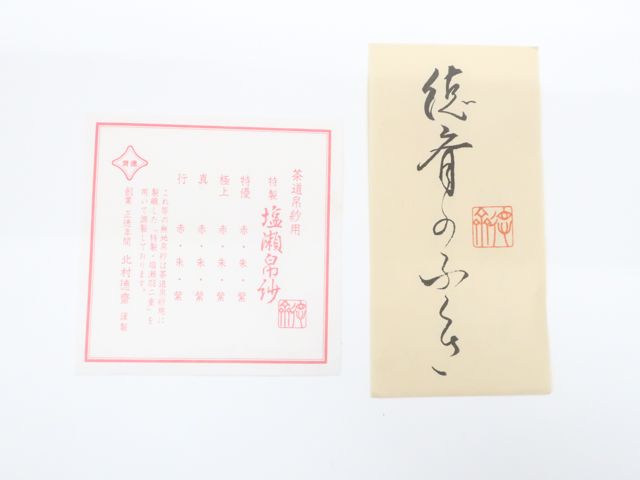 茶道帛紗用
特製 塩瀬帛紗
特優 赤・朱・紫
極上 赤・朱・紫
真 赤・朱・紫
行 赤・朱・紫
これ等の無地帛紗は茶道帛紗用に
製織した「特製・塩瀬羽二重」を
用いて調製しております。
創業 正徳年間 北村徳齋 謹製
徳斎のふくさ